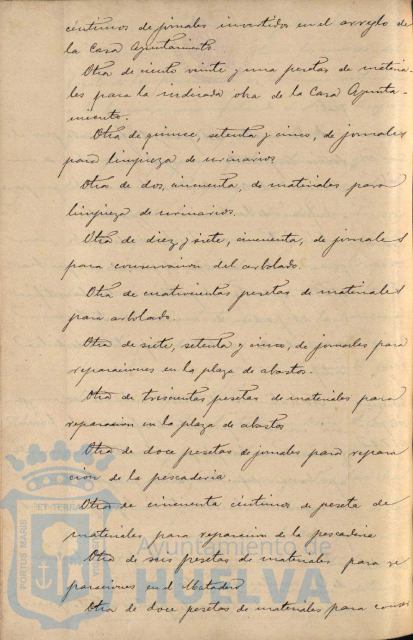 céntimos de jornales invertidos en el arreglo de
la Casa Ayuntamiento.
Otra de ciento veinte y una pesetas de materia
les para la indicada obra de la Casa Ayunta-
miento.
Otra de quince, setenta y cinco, de jornales
para limpieza de urinarios
Otra de dos, cincuenta, de materiales para
limpieza de urinarios.
Otra de diez y siete, cincuenta, de jornales
para conservacion del arbolado.
Otra de cuatrocientas pesetas de materiales
para arbolado.
Otra de siete, setenta y cinco, de jornales para
reparaciones en la plaza de abastos.
Otra de trescientas pesetas de materiales para
reparacion en la plaza de abastos
Otra de doce pesetas de jornales para repara
cion de la pescaderia.
Otra de cincuenta céntimos de peseta de
materiales para reparacion de la pescaderia
Otra de seis pesetas de materiales para re
paraciones en el Matadero
Otra de doce pesetas de materiales para
PORTUS MARIS
ET TERRAE
Ayuntamiento de
HUELVA